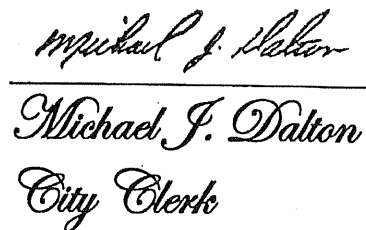 Michael J. Dalton
Michael J. Dalton
City Clerk